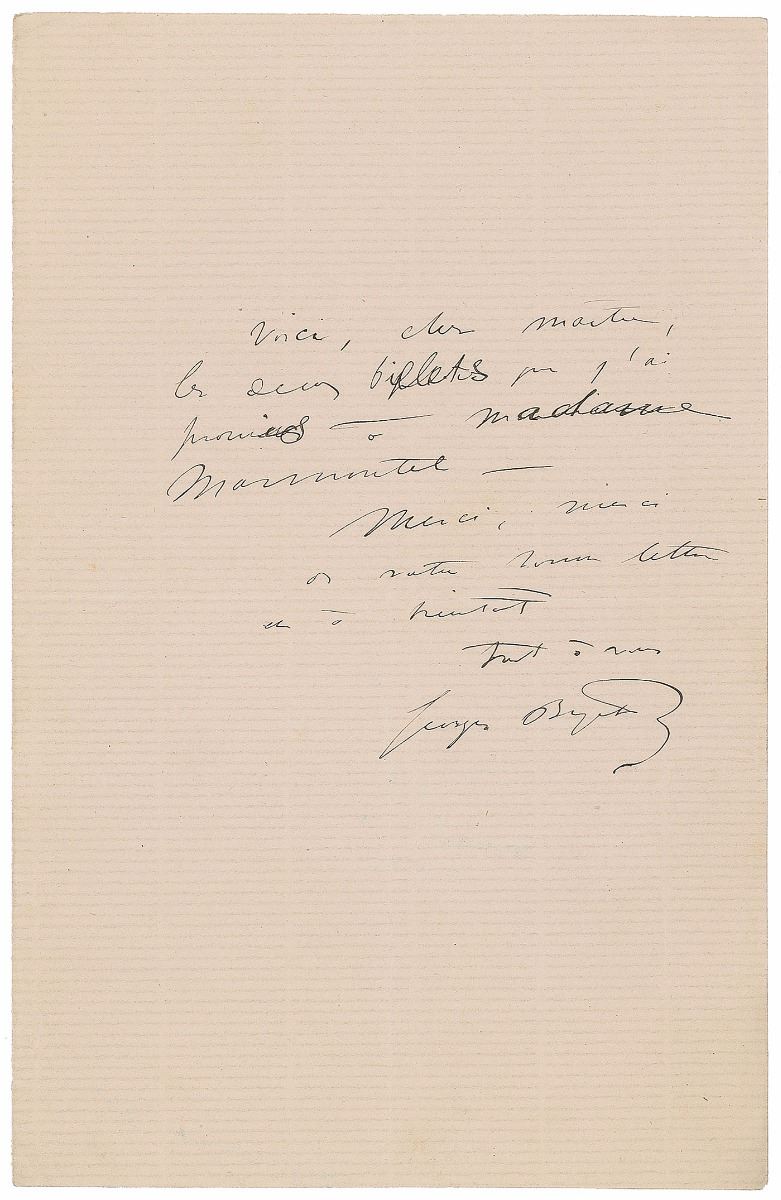 Voici, cher maître,
les deux billets que j'ai
promis à madame
Marmontel —
Merci, merci
de votre bonne lettre
et à bientôt
tout à vous
Georges Bizet